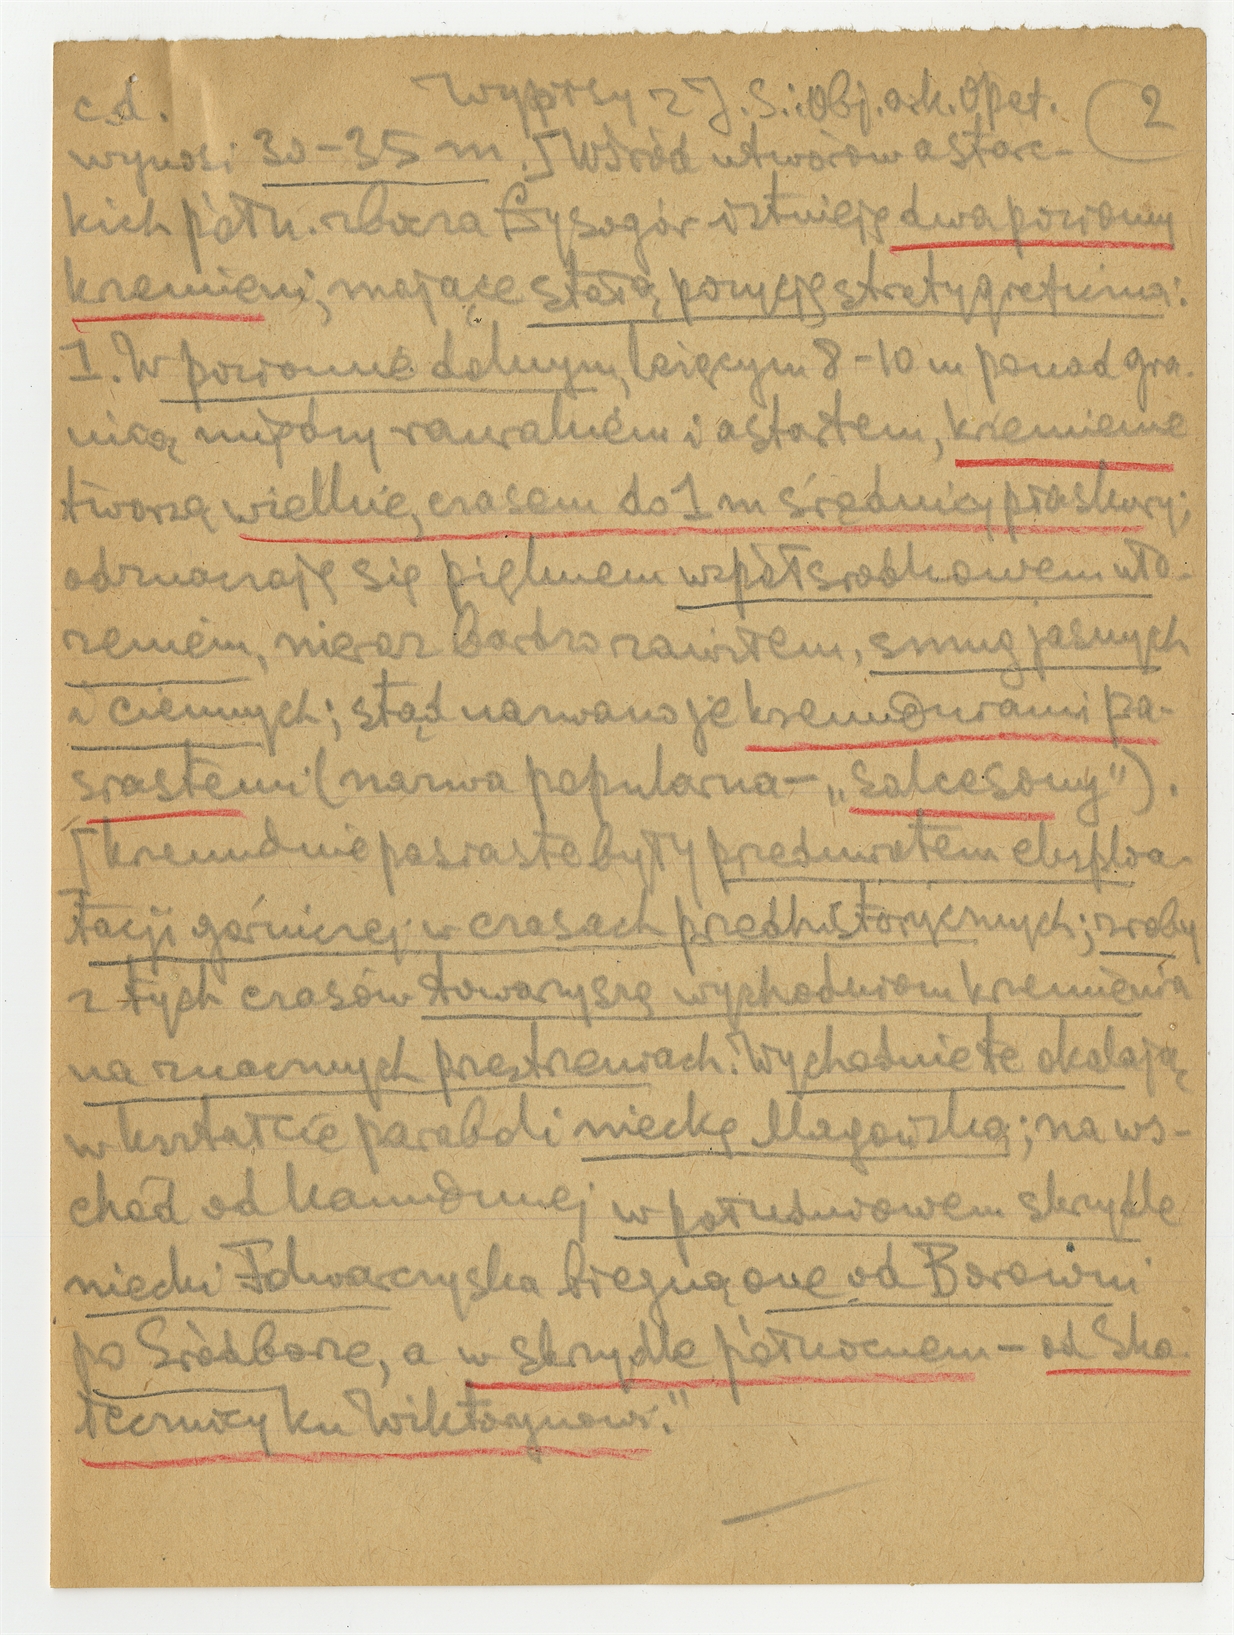 c.d. Wypisy z J. S. i Obj. ark. Opat. 2
wynosi 30-35 m. [Wśród utworów astarc-
kich półn. zbocza Łysogór istnieję dwa poziomy
krzemieni, mające stałą pozycję stratygraficzną:
1. W poziomie dolnym, leżącym 8-10 m ponad gra-
nicą między raurakiem i astartem, krzemienie
tworzą wielkie, czasem do 1 m średnicy płaskury;
odznaczaję się pięknem współśrodkowem uło-
żeniem, nieraz bardzo zawiłem, smug jasnych
i ciemnych; stąd nazwano je krzemieniami pa-
siastemi (nazwa popularna - „salcesony").
[krzemienie pasiaste były przedmiotem eksploa-
tacji górniczej w czasach przedhistorycznych; zroby
z tych czasów towarzyszą wychodniom krzemienia
na znacznych przestrzeniach. Wychodnie te okalają
w kształcie paraboli nieckę Magońską; na ws-
chód od Kamiennej w południowem skrzydle
niecki Folwarczyska biegną one od Borowni
po Śródborze, a w skrzydle północnem - od Ska-
łecznicy ku Wiktorynowi."